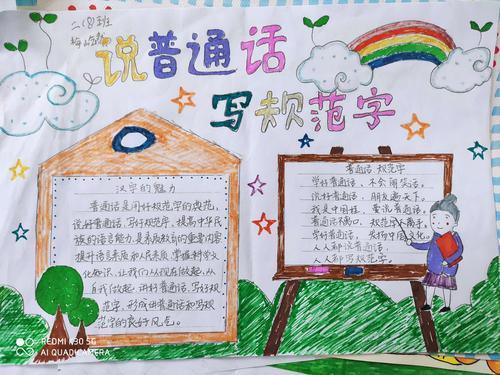 二(8)班
说普通话
写规范字
汉字的魅力
普通话是用好规范字的典范，
说好普通话、写好规范字，提高中华民
族的语言能力，是素质教育的重要内容
提升语言素质和人民素质，掌握科学文
化知识，让我们从现在做起，从
自我做起，讲好普通话，写好规
范字，形成讲普通话和写规
范字的良好风气。
普通话 规范字
学好普通话，不会闹笑话。
说好普通话，朋友遍天下。
我是中国娃，爱说普通话。
普通话顺口，规范字
学好普通话，
人人都说普通话，
人人都写规范字。
REDMI K30 5G
AI QUAD CAMERA